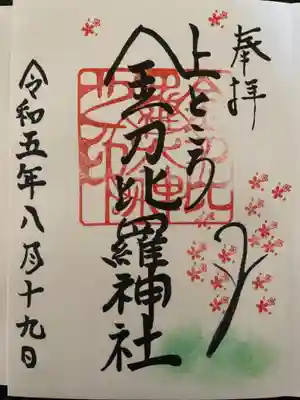 奉拝
上ところ
金刀比羅神社
令和五年八月十九日